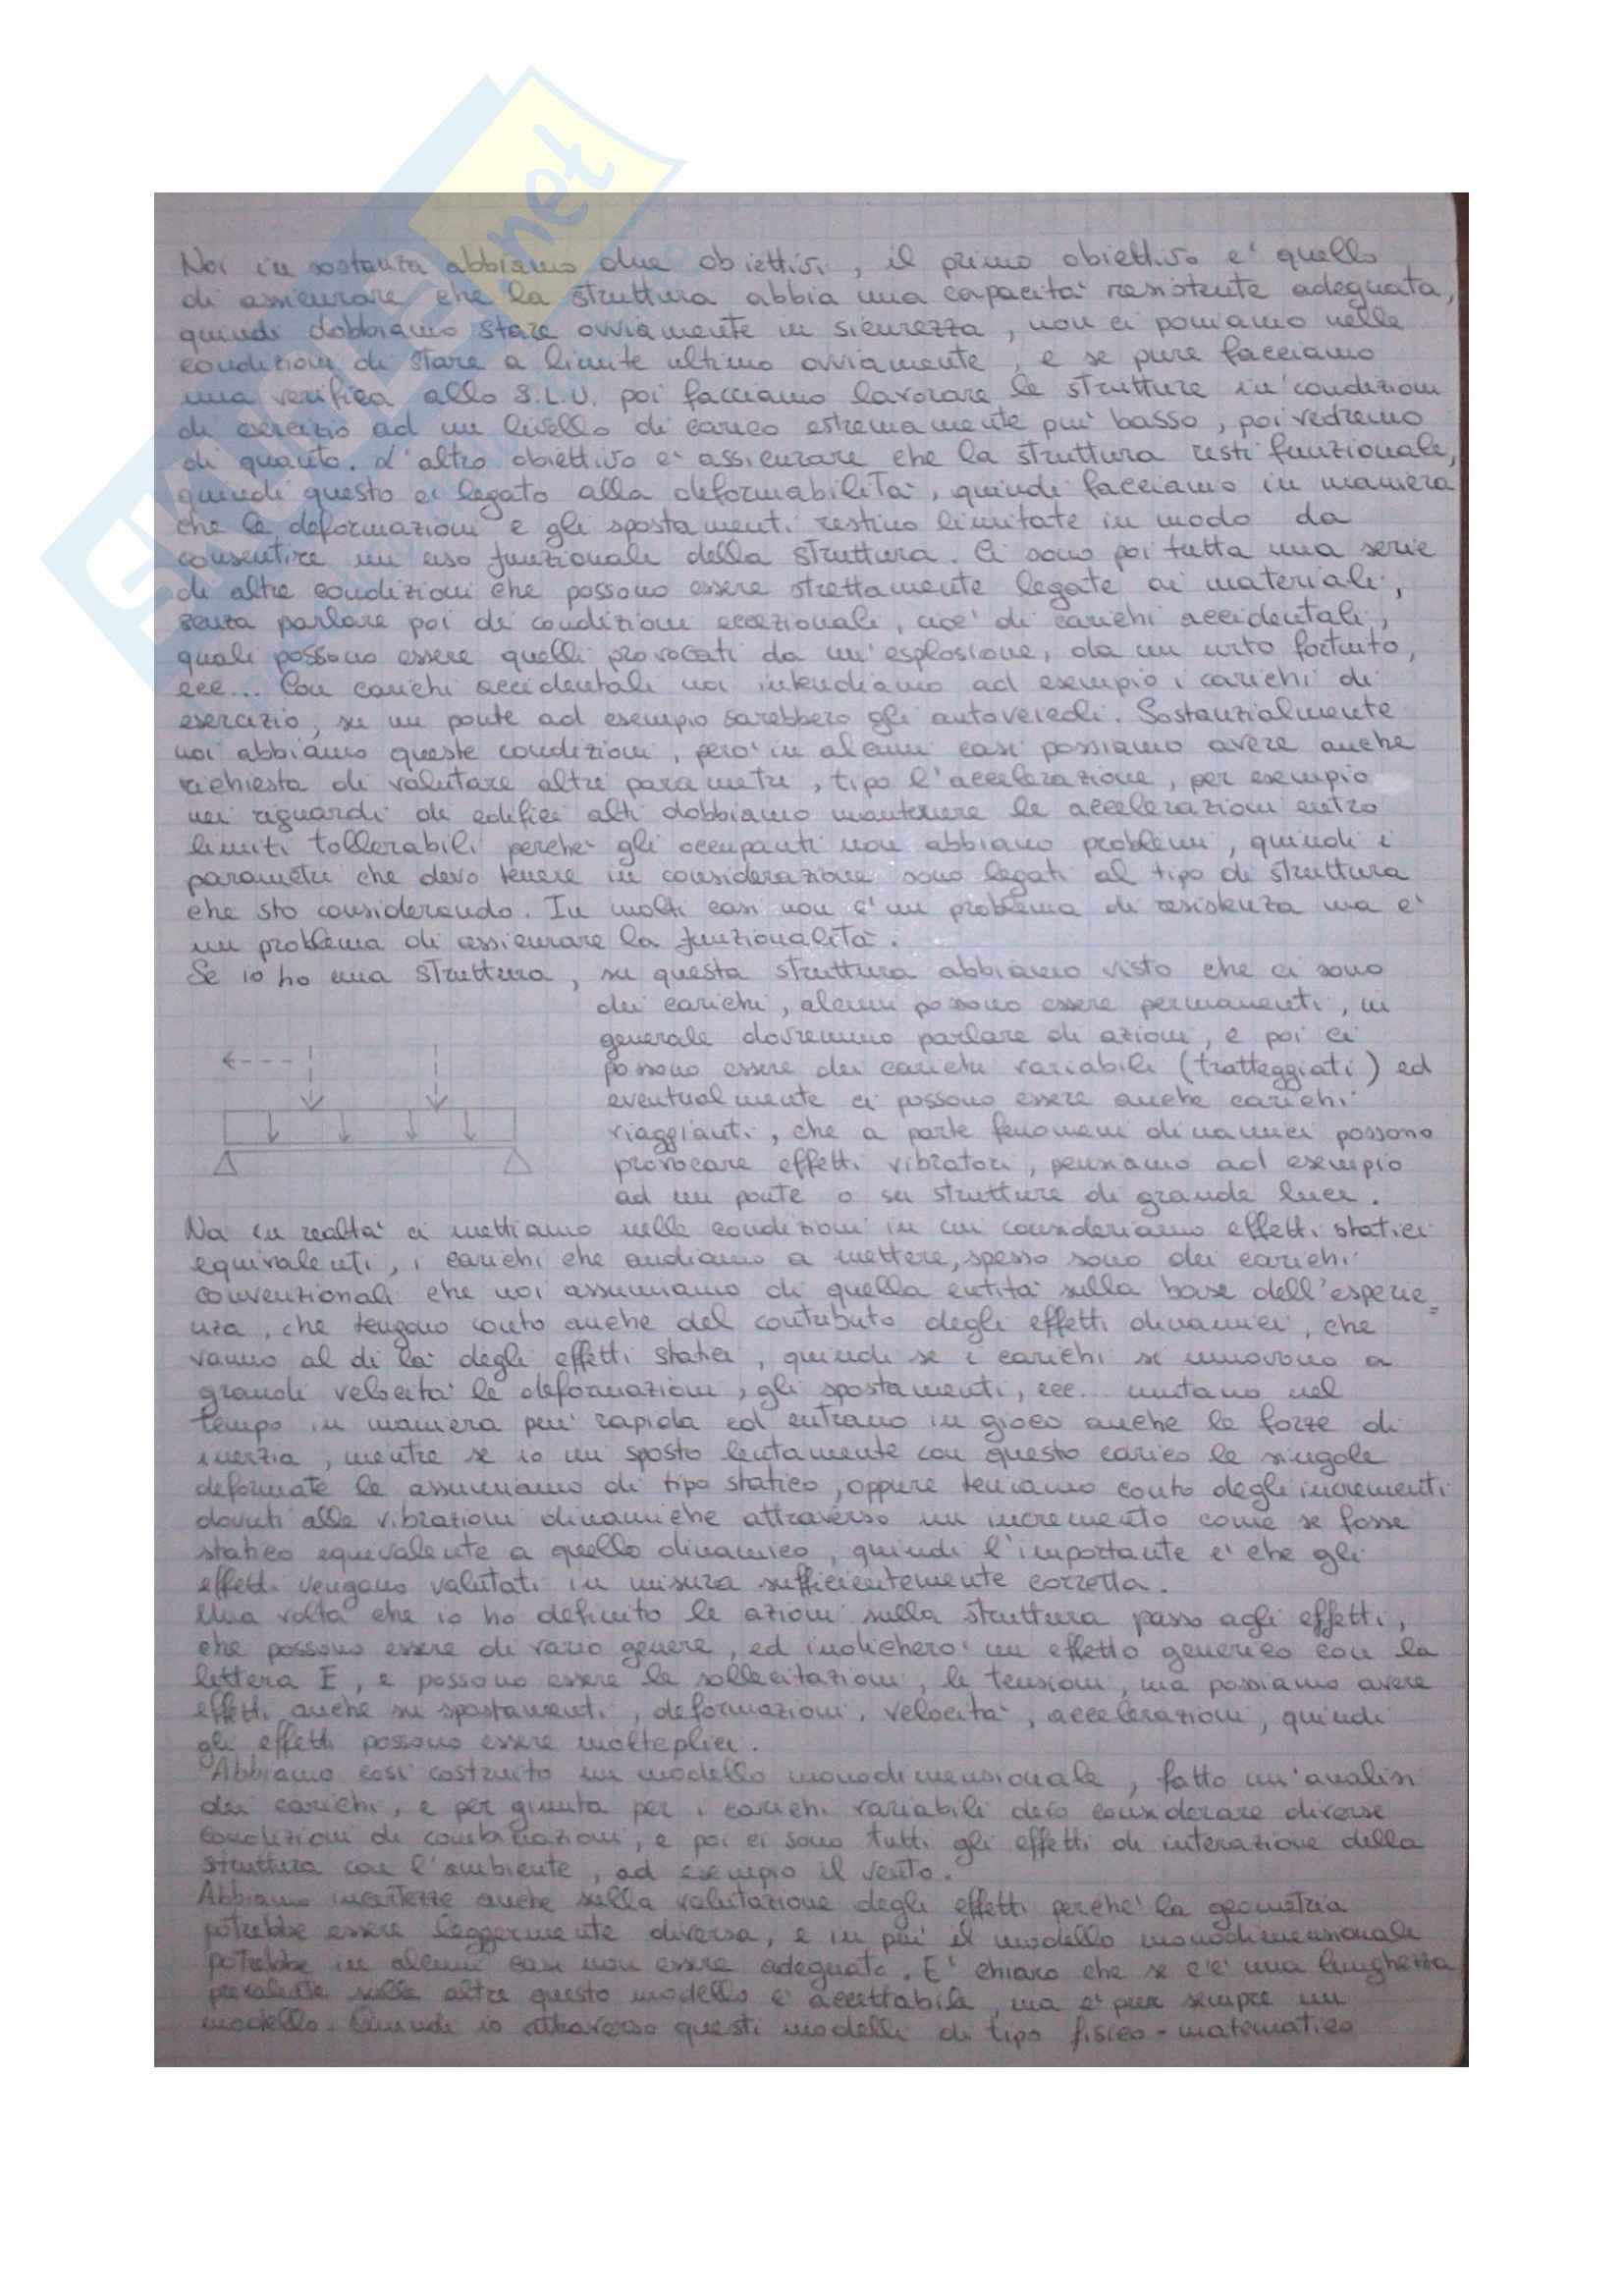 Noi in sostanza abbiamo due obiettivi, il primo obiettivo e' quello
di assicurare che la struttura abbia una capacita' resistente adeguata,
quindi dobbiamo stare ovviamente in sicurezza, non ci poniamo nelle
condizioni di stare a limite ultimo ovviamente, e se pure facciamo
una verifica allo S.L.U. poi facciamo lavorare le strutture in condizioni
di esercizio ad un livello di carico estremamente piu' basso, poi vedremo
di quanto. L'altro obiettivo e' assicurare che la struttura resti funzionale,
quindi questo e' legato alla deformabilita', quindi facciamo in maniera
che le deformazioni e gli spostamenti restino limitate in modo da
consentire un uso funzionale della struttura. Ci sono poi tutta una serie
di altre condizioni che possono essere strettamente legate ai materiali,
senza parlare poi di condizioni eccezionali, cioe' di carichi accidentali,
quali possono essere quelli provocati da un'esplosione, da un urto fortuito,
ecc... Con carichi accidentali noi intendiamo ad esempio i carichi di
esercizio, su un ponte ad esempio sarebbero gli autoveicoli. Sostanzialmente
noi abbiamo queste condizioni, pero' in alcuni casi possiamo avere anche
richiesta di valutare altri parametri, tipo l'accelerazione, per esempio
nei riguardi di edifici alti dobbiamo mantenere le accelerazioni entro
limiti tollerabili perche' gli occupanti non abbiano problemi, quindi i
parametri che devo tenere in considerazione sono legati al tipo di struttura
che sto considerando. In molti casi non e' un problema di resistenza ma e'
un problema di assicurare la funzionalita'.
Se io ho una struttura, su questa struttura abbiamo visto che ci sono
dei carichi, alcuni possono essere permanenti, in
generale dovremmo parlare di azioni, e poi ci
possono essere dei carichi variabili (tratteggiati) ed
eventualmente ci possono essere anche carichi
viaggianti, che a parte fenomeni dinamici possono
provocare effetti vibratori, pensiamo ad esempio
ad un ponte o su strutture di grande luce.
Ma in realta' ci mettiamo nelle condizioni in cui consideriamo effetti statici
equivalenti, i carichi che andiamo a mettere, spesso sono dei carichi
convenzionali che noi assumiamo di quella entita' sulla base dell'esperie=
nza, che tengono conto anche del contributo degli effetti dinamici, che
vanno al di la' degli effetti statici, quindi se i carichi si muovono a
grandi velocita' le deformazioni, gli spostamenti, ecc... mutano nel
tempo in maniera piu' rapida ed entrano in gioco anche le forze di
inerzia, mentre se io mi sposto lentamente con questo carico le singole
deformate le assumiamo di tipo statico, oppure teniamo conto degli incrementi
dovuti alle vibrazioni dinamiche attraverso un incremento come se fosse
statico equivalente a quello dinamico, quindi l'importante e' che gli
effetti vengano valutati in misura sufficientemente corretta.
Una volta che io ho definito le azioni sulla struttura passo agli effetti,
che possono essere di vario genere, ed indichero' un effetto generico con la
lettera E, e possono essere le sollecitazioni, le tensioni, ma possiamo avere
effetti anche su spostamenti, deformazioni, velocita', accelerazioni, quindi
gli effetti possono essere molteplici.
Abbiamo cosi' costruito un modello monodimensionale, fatto un'analisi
dei carichi, e per giunta per i carichi variabili devo considerare diverse
condizioni di combinazioni, e poi ci sono tutti gli effetti di interazione della
struttura con l'ambiente, ad esempio il vento.
Abbiamo incertezze anche sulla valutazione degli effetti perche' la geometria
potrebbe essere leggermente diversa, e in piu' il modello monodimensionale
potrebbe in alcuni casi non essere adeguato. E' chiaro che se c'e' una lunghezza
prevalente sulle altre questo modello e' accettabile, ma e' pur sempre un
modello. Quindi io attraverso questi modelli di tipo fisico-matematico
.net